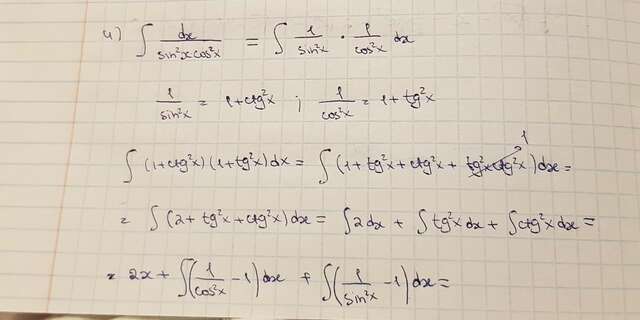 u) ∫ dx/(sin²x cos²x) = ∫ 1/sin²x · 1/cos²x dx
1/sin²x = 1+ctg²x ; 1/cos²x = 1+tg²x
∫(1+ctg²x)(1+tg²x)dx = ∫(1+tg²x+ctg²x+tg²x ctg²x)dx = 1
= ∫(2+tg²x+ctg²x)dx = ∫2dx + ∫tg²x dx + ∫ctg²x dx =
= 2x + ∫(1/cos²x - 1)dx + ∫(1/sin²x - 1)dx =